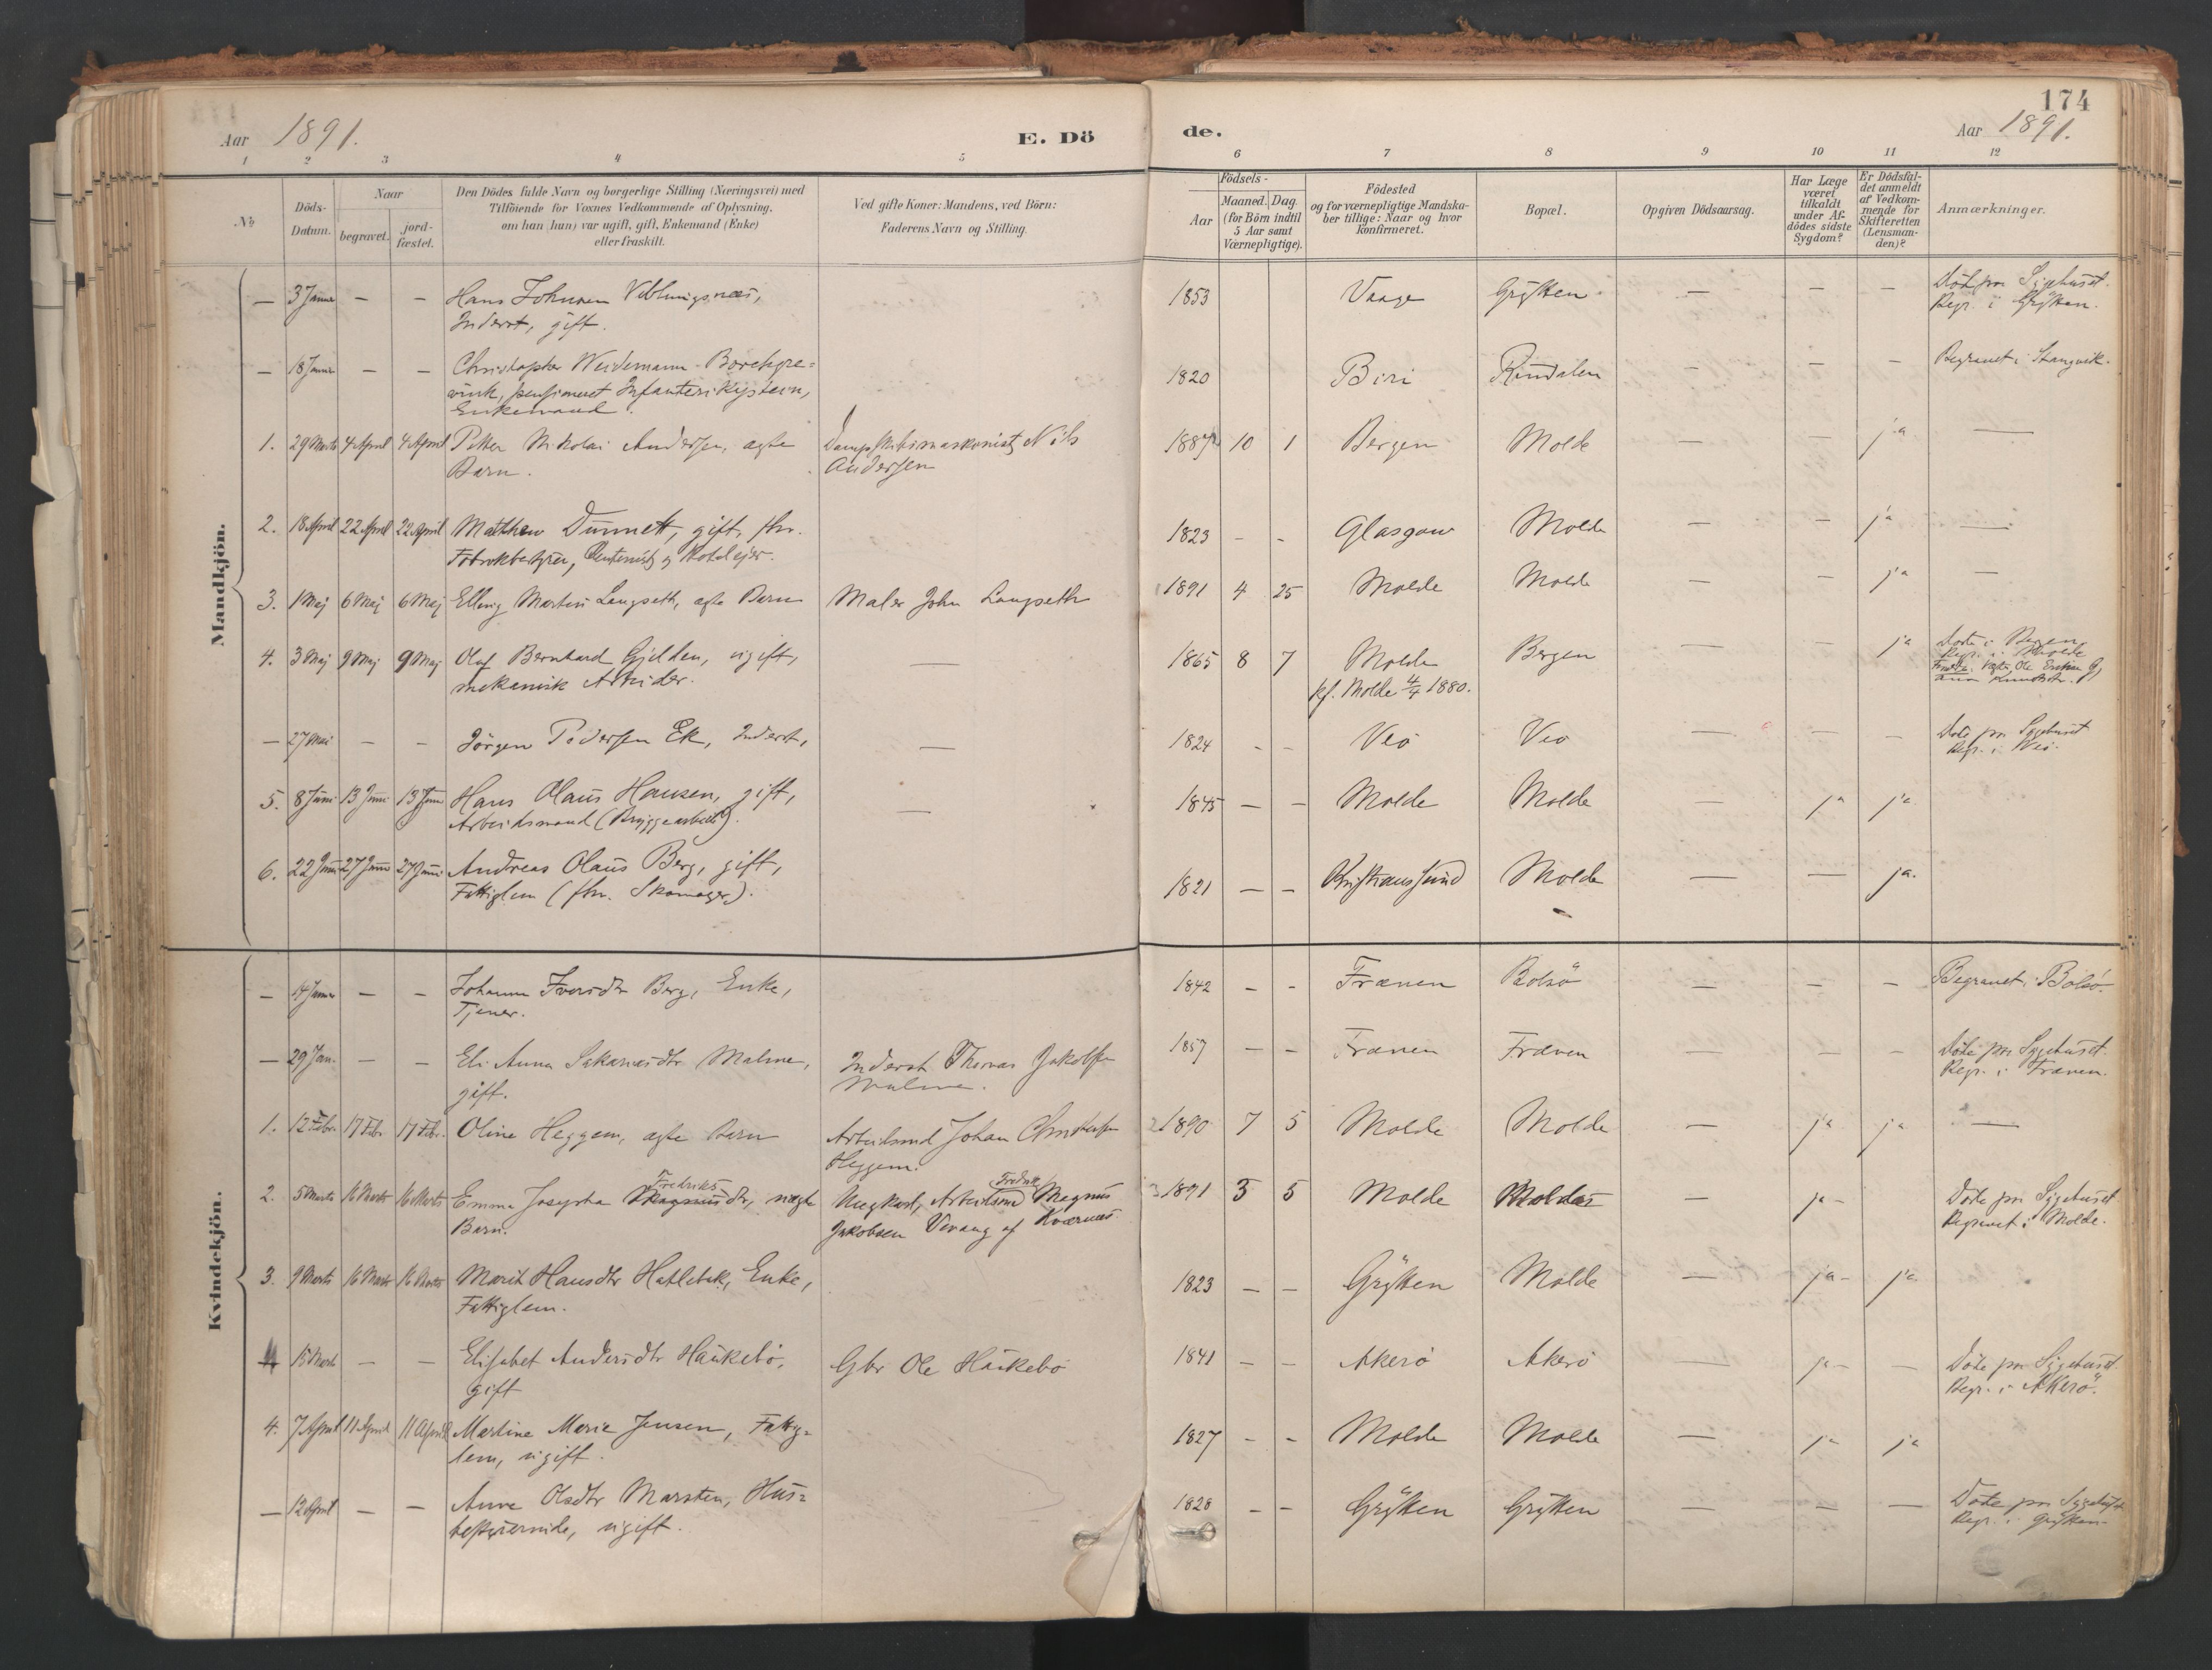 174
Aar 1891.
E. Dö
de.
Aar 1891.
1 2 3 4 5 6 7 8 9 10 11 12
№
Döds-
Datum.
Naar
begravet.
jord-
fæstet.
Den Dödes fulde Navn og borgerlige Stilling (Næringsvei) med
Tilföiende for Voxnes Vedkommende af Oplysning,
om han (hun) var ugift, gift, Enkemand (Enke)
eller fraskilt.
Ved gifte Koner: Mandens, ved Börn:
Faderens Navn og Stilling.
Födsels-
Aar
Maaned. Dag.
(for Börn indtil
5 Aar samt
Værnepligtige).
Födested
og for værnepligtige Mandska-
ber tillige: Naar og hvor
konfirmeret.
Bopæl.
Opgiven Dödsaarsag.
Har Læge
været
tilkaldt
under Af-
dödes sidste
Sygdom?
Er Dödsfal-
det anmeldt
af Vedkom-
mende for
Skifteretten
(Lensman-
den)?
Anmærkninger.
Mandkjön.
— 3 Januar — — Hans Johnsen Veblungsnæs, 1853 Vaage Grytten — — — Död paa Sygehuset.
Inderst, gift. Begr. i Grytten.
— 18 Januar — — Christopher Weidemann 1820 Biri Rindalen — — — Begravet i Stangvik.
pensioneret Infanteri
Enkemand.
1. 29 Marts 4 April 4 April Petter Nikolai Andersen, ægte Dampskibsmaskinist Nils 1887 10 1 Bergen Molde — — ja —
Barn. Andersen
2. 18 April 22 April 22 April Matthew Dunnett, gift, fhv. 1823 - - Glasgow Molde — — ja —
Fabrikbestyrer, og Hotelejer.
3. 1 Maj 6 Maj 6 Maj Elling Martin Langseth, ægte Barn Maler John Langseth 1891 4 25 Molde Molde — — ja —
4. 3 Maj 9 Maj 9 Maj Olaf Bernhard Gjelden, ugift, — 1865 8 7 Molde Bergen — — ja Döde i Bergen
mekanisk Arbeider. kf. Molde 4/4 1880. Begr. i Molde
— 27 Mai — — Jörgen Pedersen Ek, Inderst, — 1824 - - Veö Veö — — — Döde paa Sygehuset
Begr. i Veö.
5. 8 Juni 13 Juni 13 Juni Hans Olaus Hansen, gift, — 1845 — — Molde Molde — ja ja
Arbeidsmand (Bryggearbeid).
6. 22 Juni 27 Juni 27 Juni Andreas Olaus Berg, gift, 1821 — — Kristianssund Molde — — ja.
Fattiglem (fhv. Skomager).
Kvindekjön.
— 14 Januar — — Johanna Iversdtr Berg, Enke, 1842 - - Frænen Bolsö — — — Begravet i Bolsö.
Tjener.
— 29 Jan. — — Eli Anna Sakariasdtr Malme, Inderst Thomas Jakobsen 1857 - - Frænen Frænen — — — Döde paa Sygehuset.
gift. Malme. Begr. i Frænen.
1. 12 Febr. 17 Febr. 17 Febr. Oline Heggem, ægte Barn Arbeidsmd Johan Christensen 1890 7 5 Molde Molde — ja ja —
Heggem.
Fredriks Fredrik
2. 5 Marts 16 Marts 16 Marts Emma Josepha Magnusdtr, uægte Ungkarl, Arbeidsmd Magnus 1891 3 5 Molde Molde — ja - Döde paa Sygehuset
Barn. Jakobsen Vevang af Kværnæs. Begravet i Molde.
3. 9 Marts 16 Marts 16 Marts Marit Hansdtr Hatlebak, Enke, 1823 — — Grytten Molde — ja - ja
Fattiglem.
4 15 Marts — — Elisabet Andersdtr Haukebö, Gbr Ole Haukebö 1841 - - Akerö Akerö — ja - — Döde paa Sygehuset
gift Begr. i Akerö.
4. 7 April 11 April 11 April Martine Marie Jensen, Fattig- 1827 - - Molde Molde — ja ja
lem, ugift.
— 12 April — — Anne Olsdtr Marsten, Hus- 1828 - - Grytten Grytten — — — Döde paa Sygehuset
bestyrerinde, ugift. Begr. i Grytten.